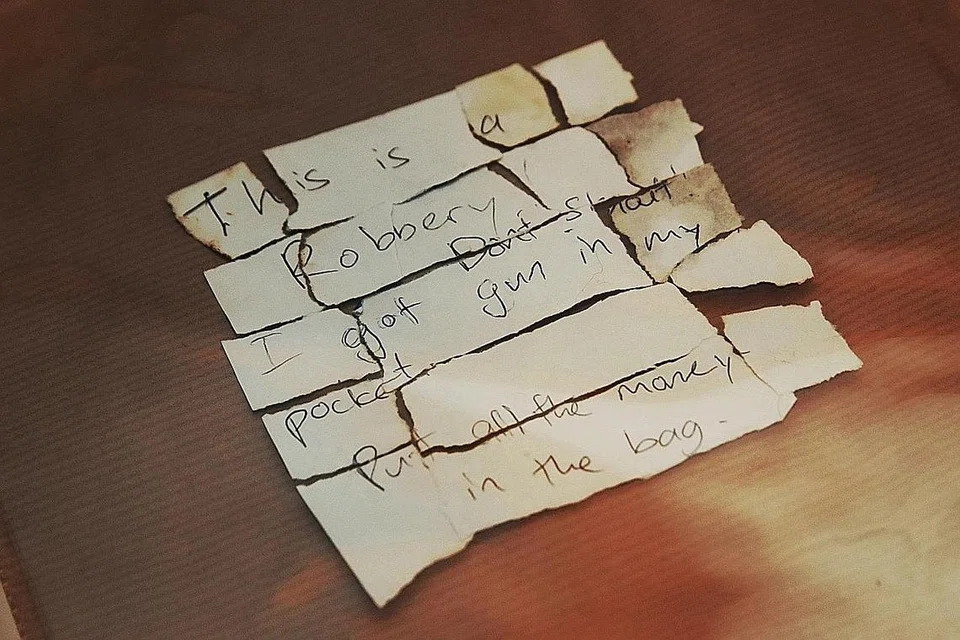 This is a
Robbery! Don't shout!
I gott gun in my
pocket.
Putt alll the money
in the bag.